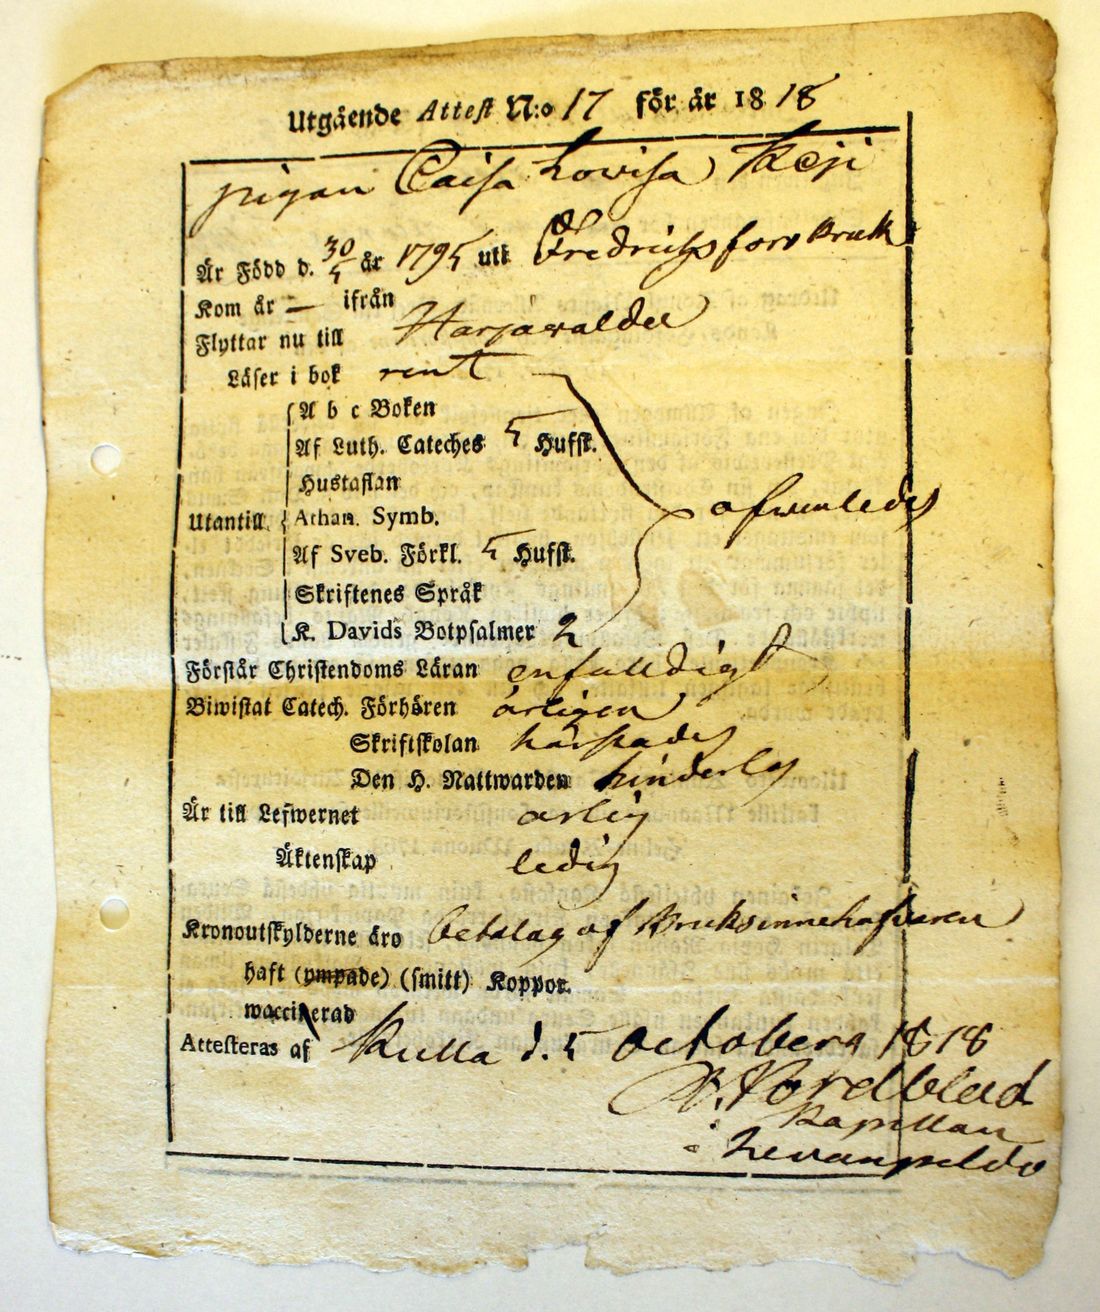 Utgående Attest N:o 17 för år 1818
pigan Caisa Lovisa Keji
Är Född d. 30/5 år 1795 uti Fredrichsfors Bruk
Kom år — ifrån
Flyttar nu till Harjawalda
Läser i bok rent
A b c Boken
Af Luth. Cateches 5 Hufst.
Hustaflan
Utantill Athan. Symb. afwenledes
Af Sveb. Förkl. 5 Hufst.
Skriftenes Språk
K. Davids Botpsalmer 2
Förstår Christendoms Läran enfalldigt
Biwistat Catech. Förhören årligen
Skriftskolan
Den H. Nattwarden hinderlös
Är till Lefwernet ärlig
Äktenskap ledig
Kronoutskylderne äro betalas af Bruksinnehafvaren
haft (ympade) (smitt) Koppor.
waccinerad
Attesteras af Kulla d. 5 October 1818
Nordblad
Kapellan